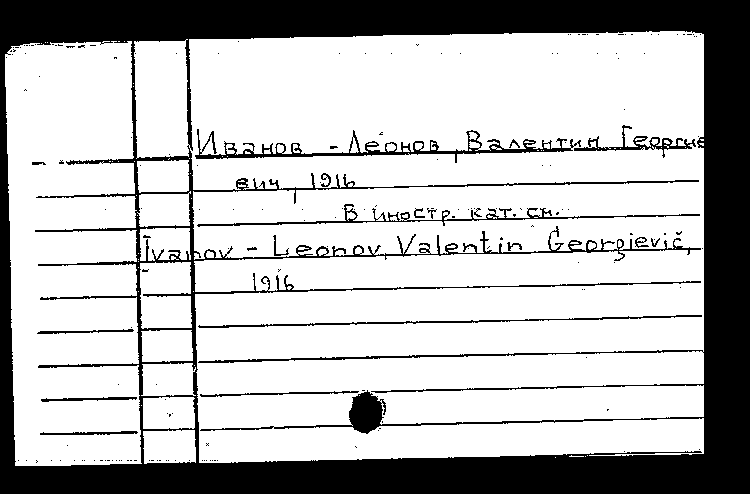 Иванов - Леонов, Валентин Георгие
вич, 1916
В иностр. кат. см.
Ivanov - Leonov, Valentin Georgievič,
1916